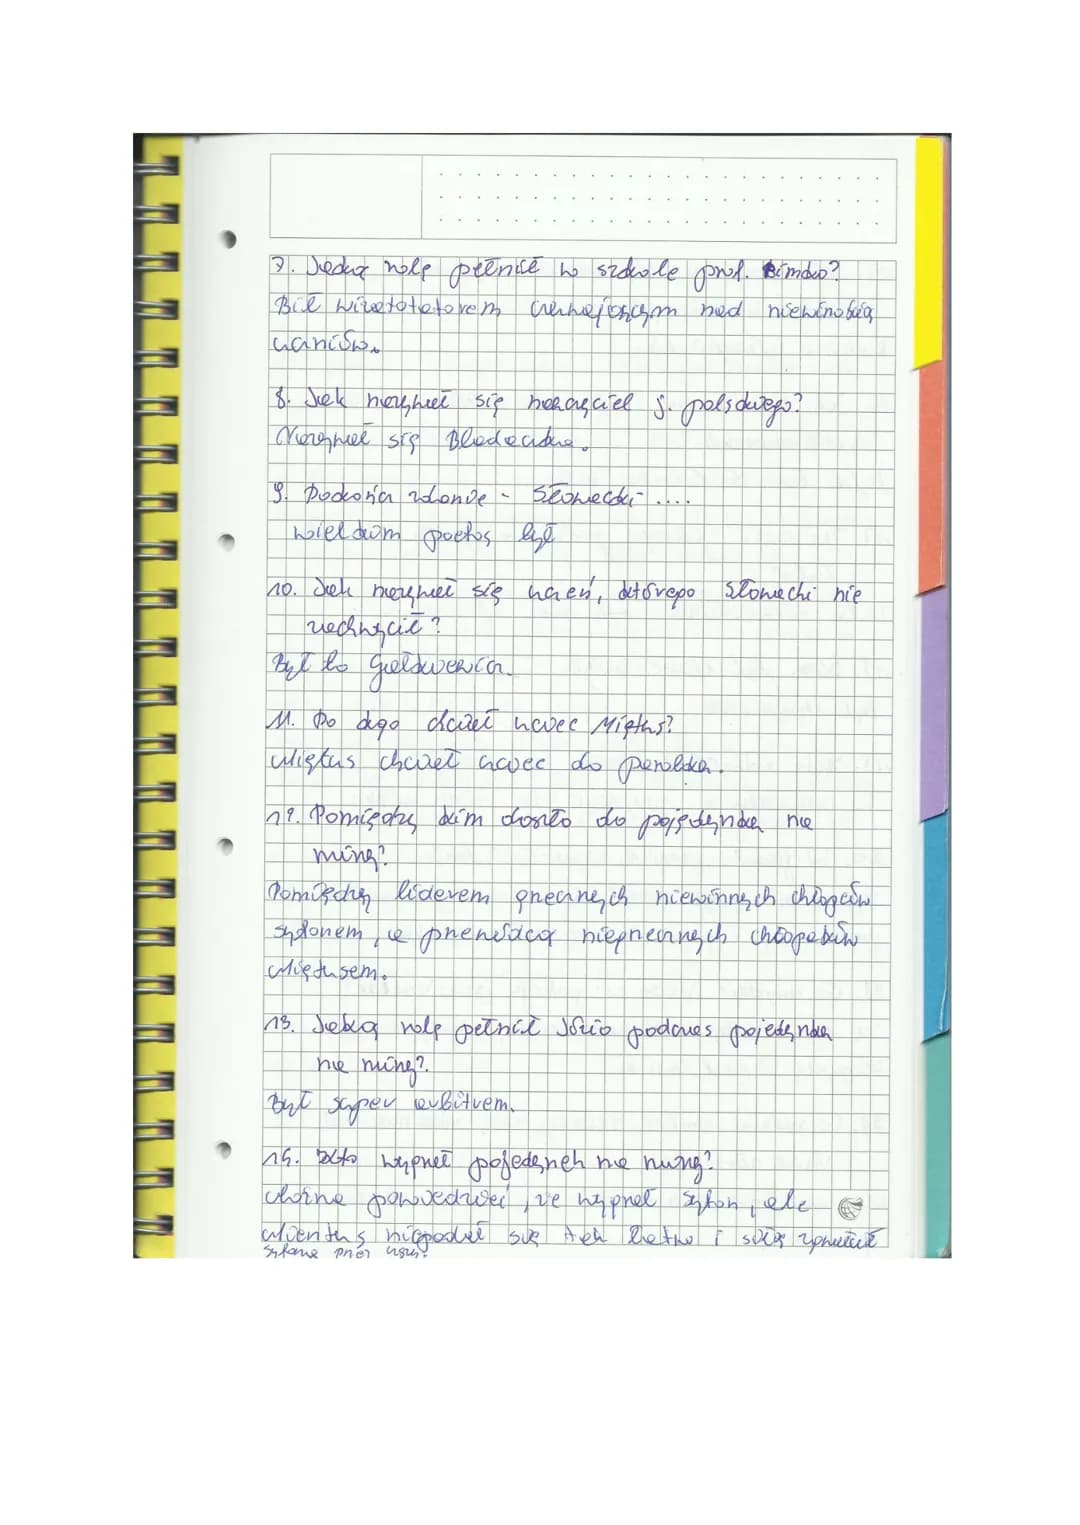 7. Jaką rolę pełnił w szkole prof. Pimko?
Bił wizytatorem czuwającym nad niewinością
uczniów.
8. Jak nazywał się nauczyciel j. polskiego?
Nazywał się Bladaczka.
9. Dokończ zdanie - Słowacki - ....
wielkim poetą był
10. Jak nazywał się uczeń, którego Słowacki nie
zachwycił?
Był to Gałkiewicz.
11. Do kogo chciał uciec Miętus?
Miętus chciał uciec do parobka.
12. Pomiędzy kim doszło do pojedynku na
miny?
Pomiędzy liderem grzecznych niewinnych chłopców
Syfonem, a przewódcą niegrzecznych chłopaków
Miętusem.
13. Jaką rolę pełnił Józio podczas pojedynku
na miny?
Był super arbitrem.
14. Kto wygrał pojedynek na miny?
Można powiedzieć, że wygrał Syfon, ale
Mientus niepodał się tak łatwo i siłą zgwałcił
Syfona przez uszy.